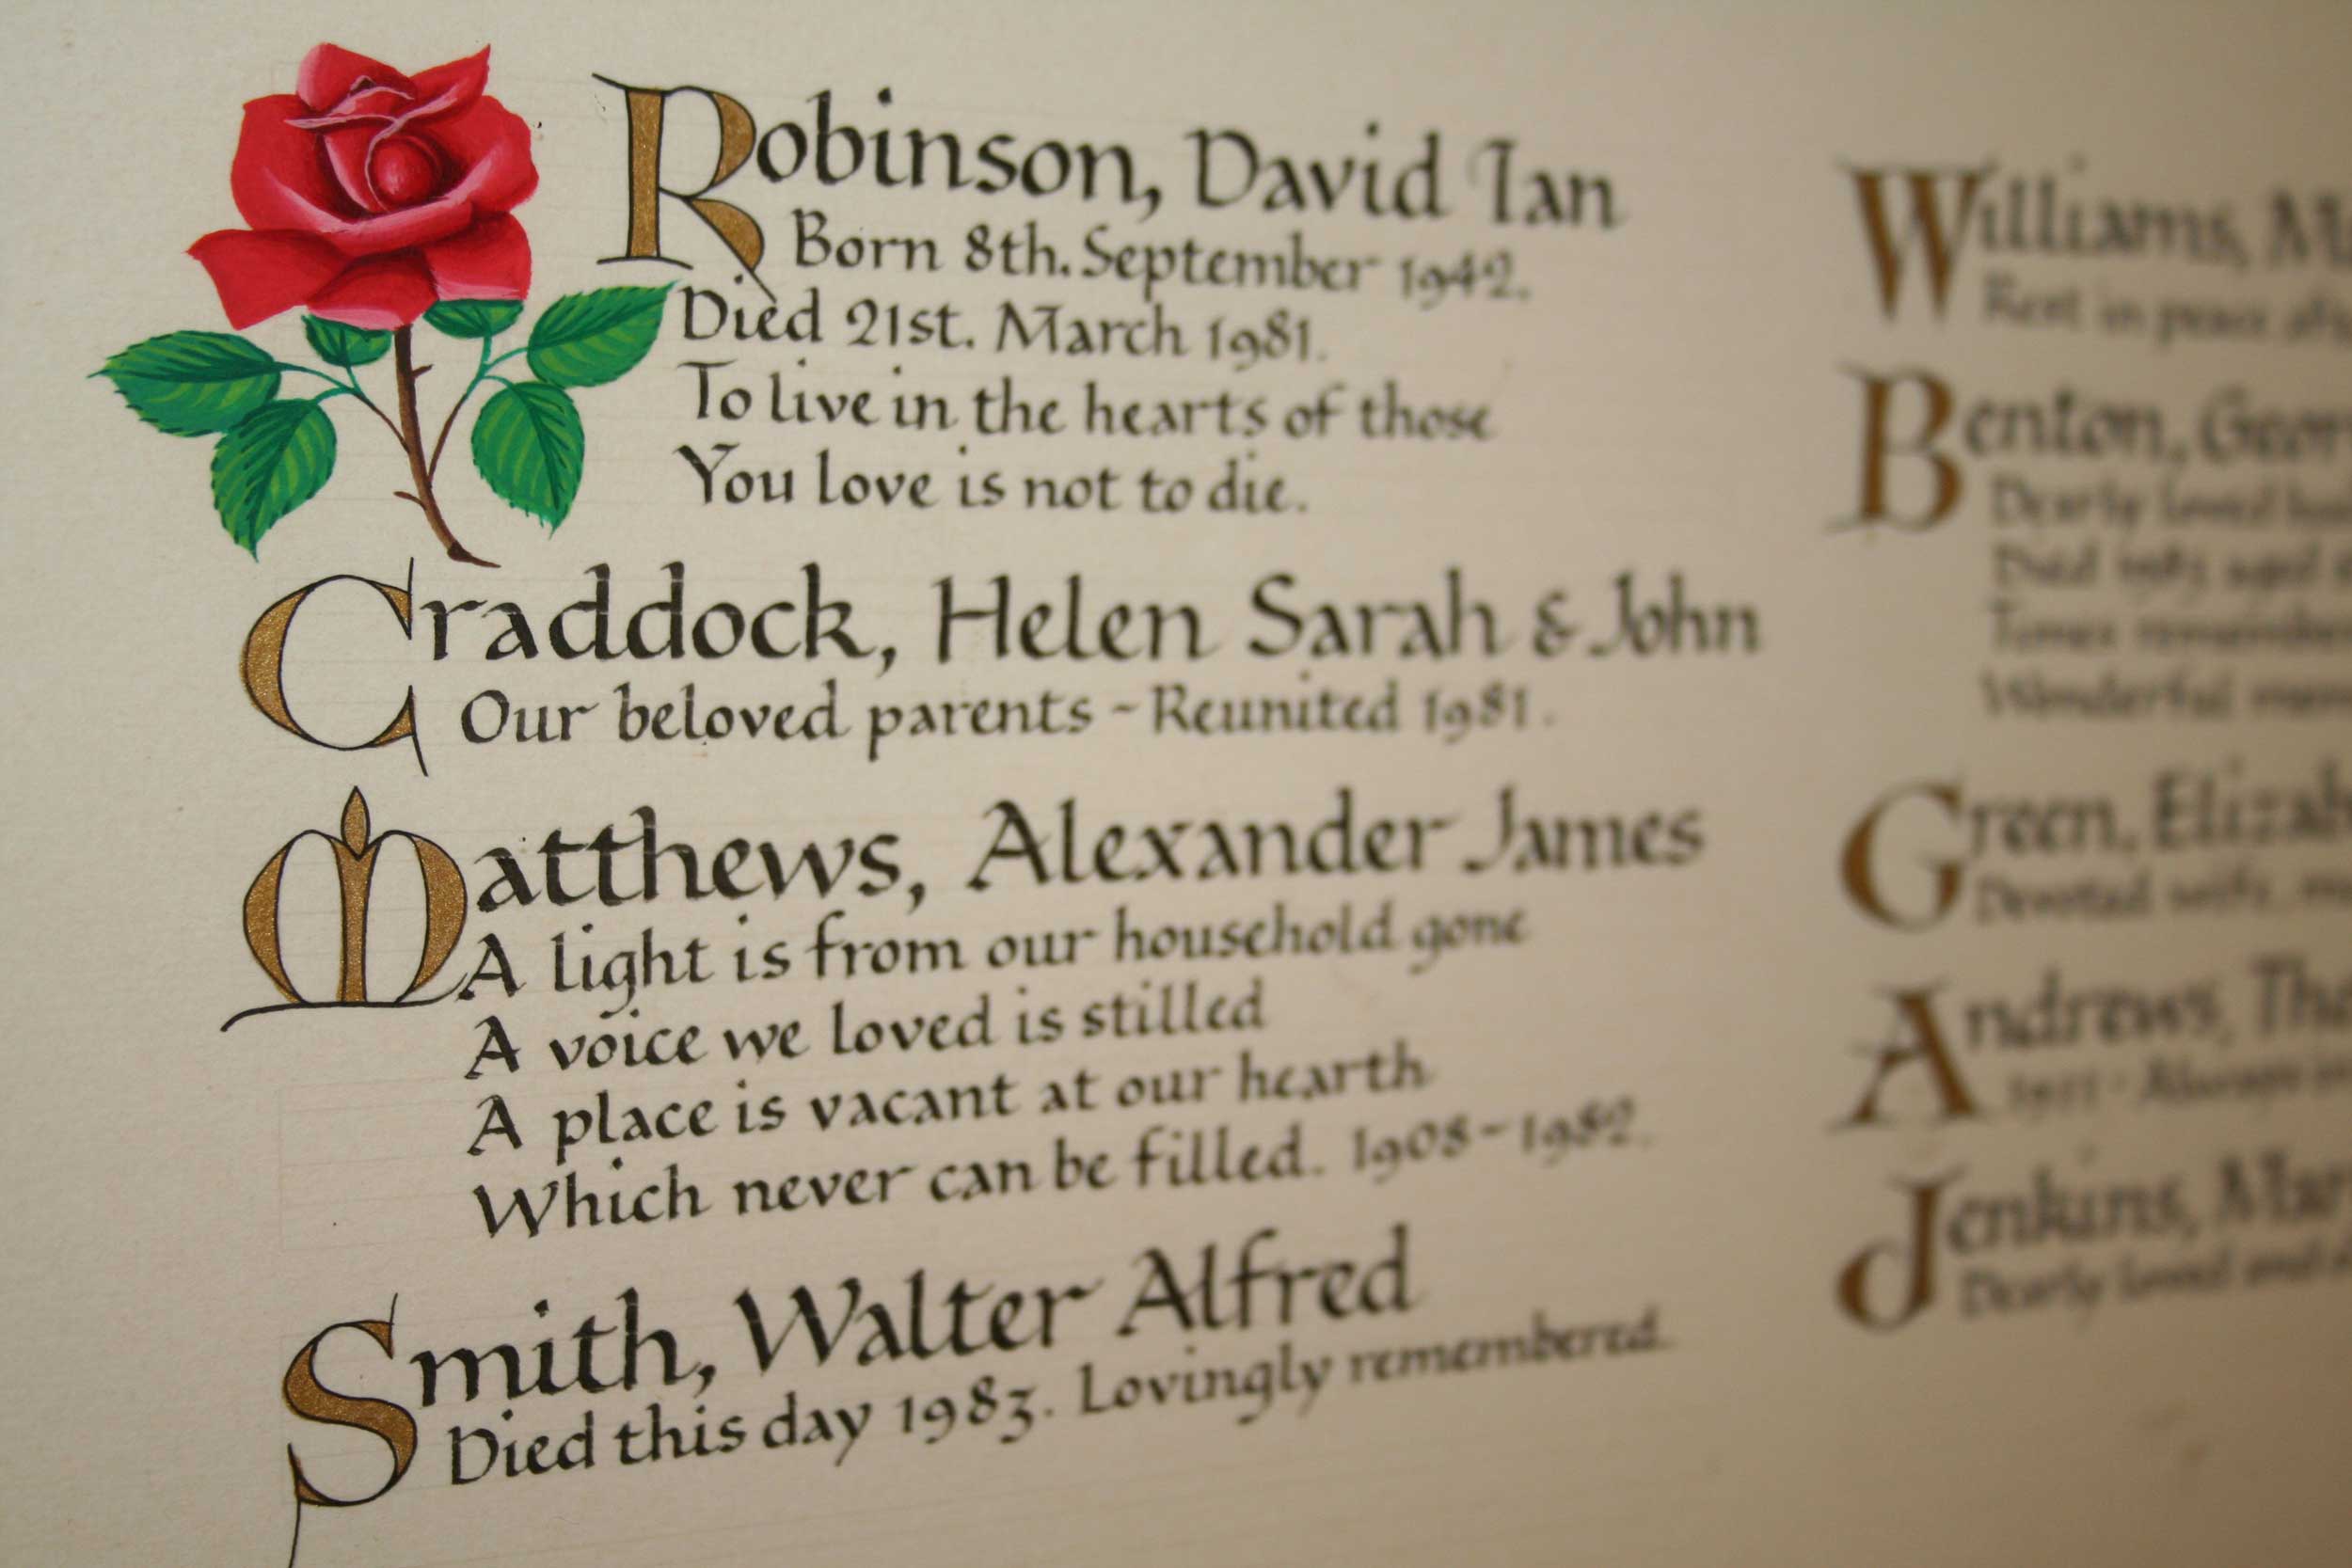 Robinson, David Ian
Born 8th. September 1942.
Died 21st. March 1981.
To live in the hearts of those
You love is not to die.
Craddock, Helen Sarah & John
Our beloved parents ~ Reunited 1981.
Matthews, Alexander James
A light is from our household gone
A voice we loved is stilled
A place is vacant at our hearth
Which never can be filled. 1908-1982.
Smith, Walter Alfred
Died this day 1983. Lovingly remembered.
Williams,
Rest in peace
Benton,
Dearly loved
Died 1983 aged
Times
Wonderful
Green,
Devoted wife,
Andrews,
Always
Jenkins,
Dearly loved and